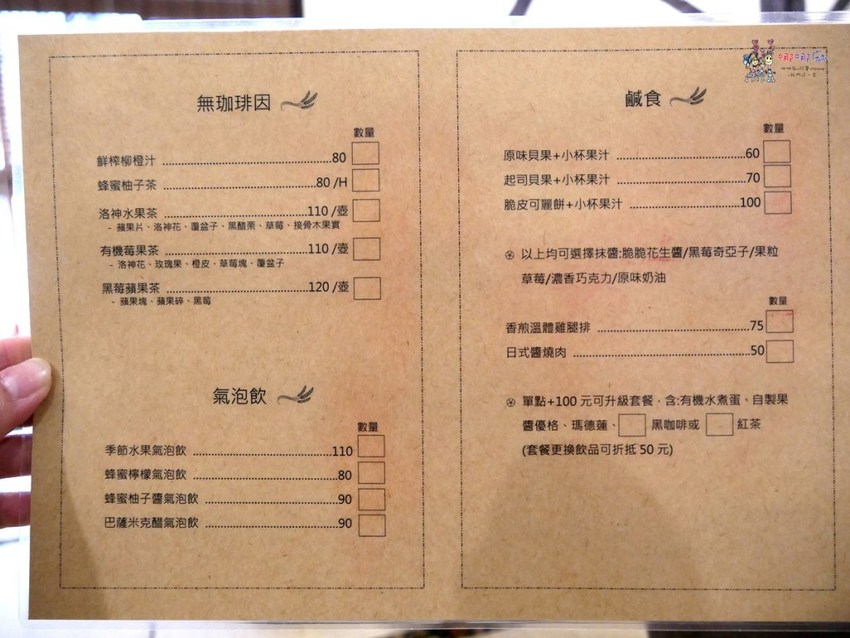 無珈琲因
數量
鮮榨柳橙汁 ........ 80
蜂蜜柚子茶 ........ 80 /H
洛神水果茶 ........ 110 /壺
- 蘋果片、洛神花、覆盆子、黑醋栗、草莓、接骨木果實
有機莓果茶 ........ 110 /壺
- 洛神花、玫瑰果、橙皮、草莓塊、覆盆子
黑莓蘋果茶 ........ 120 /壺
- 蘋果塊、蘋果碎、黑莓
氣泡飲
數量
季節水果氣泡飲 ........ 110
蜂蜜檸檬氣泡飲 ........ 80
蜂蜜柚子醬氣泡飲 ........ 90
巴薩米克醋氣泡飲 ........ 90
鹹食
數量
原味貝果+小杯果汁 ........ 60
起司貝果+小杯果汁 ........ 70
脆皮可麗餅+小杯果汁 ........ 100
以上均可選擇抹醬:脆脆花生醬/黑莓奇亞子/果粒
草莓/濃香巧克力/原味奶油
數量
香煎溫體雞腿排 ........ 75
日式醬燒肉 ........ 50
單點+100 元可升級套餐，含:有機水煮蛋、自製果
醬優格、瑪德蓮、 黑咖啡或 紅茶
(套餐更換飲品可折抵 50 元)